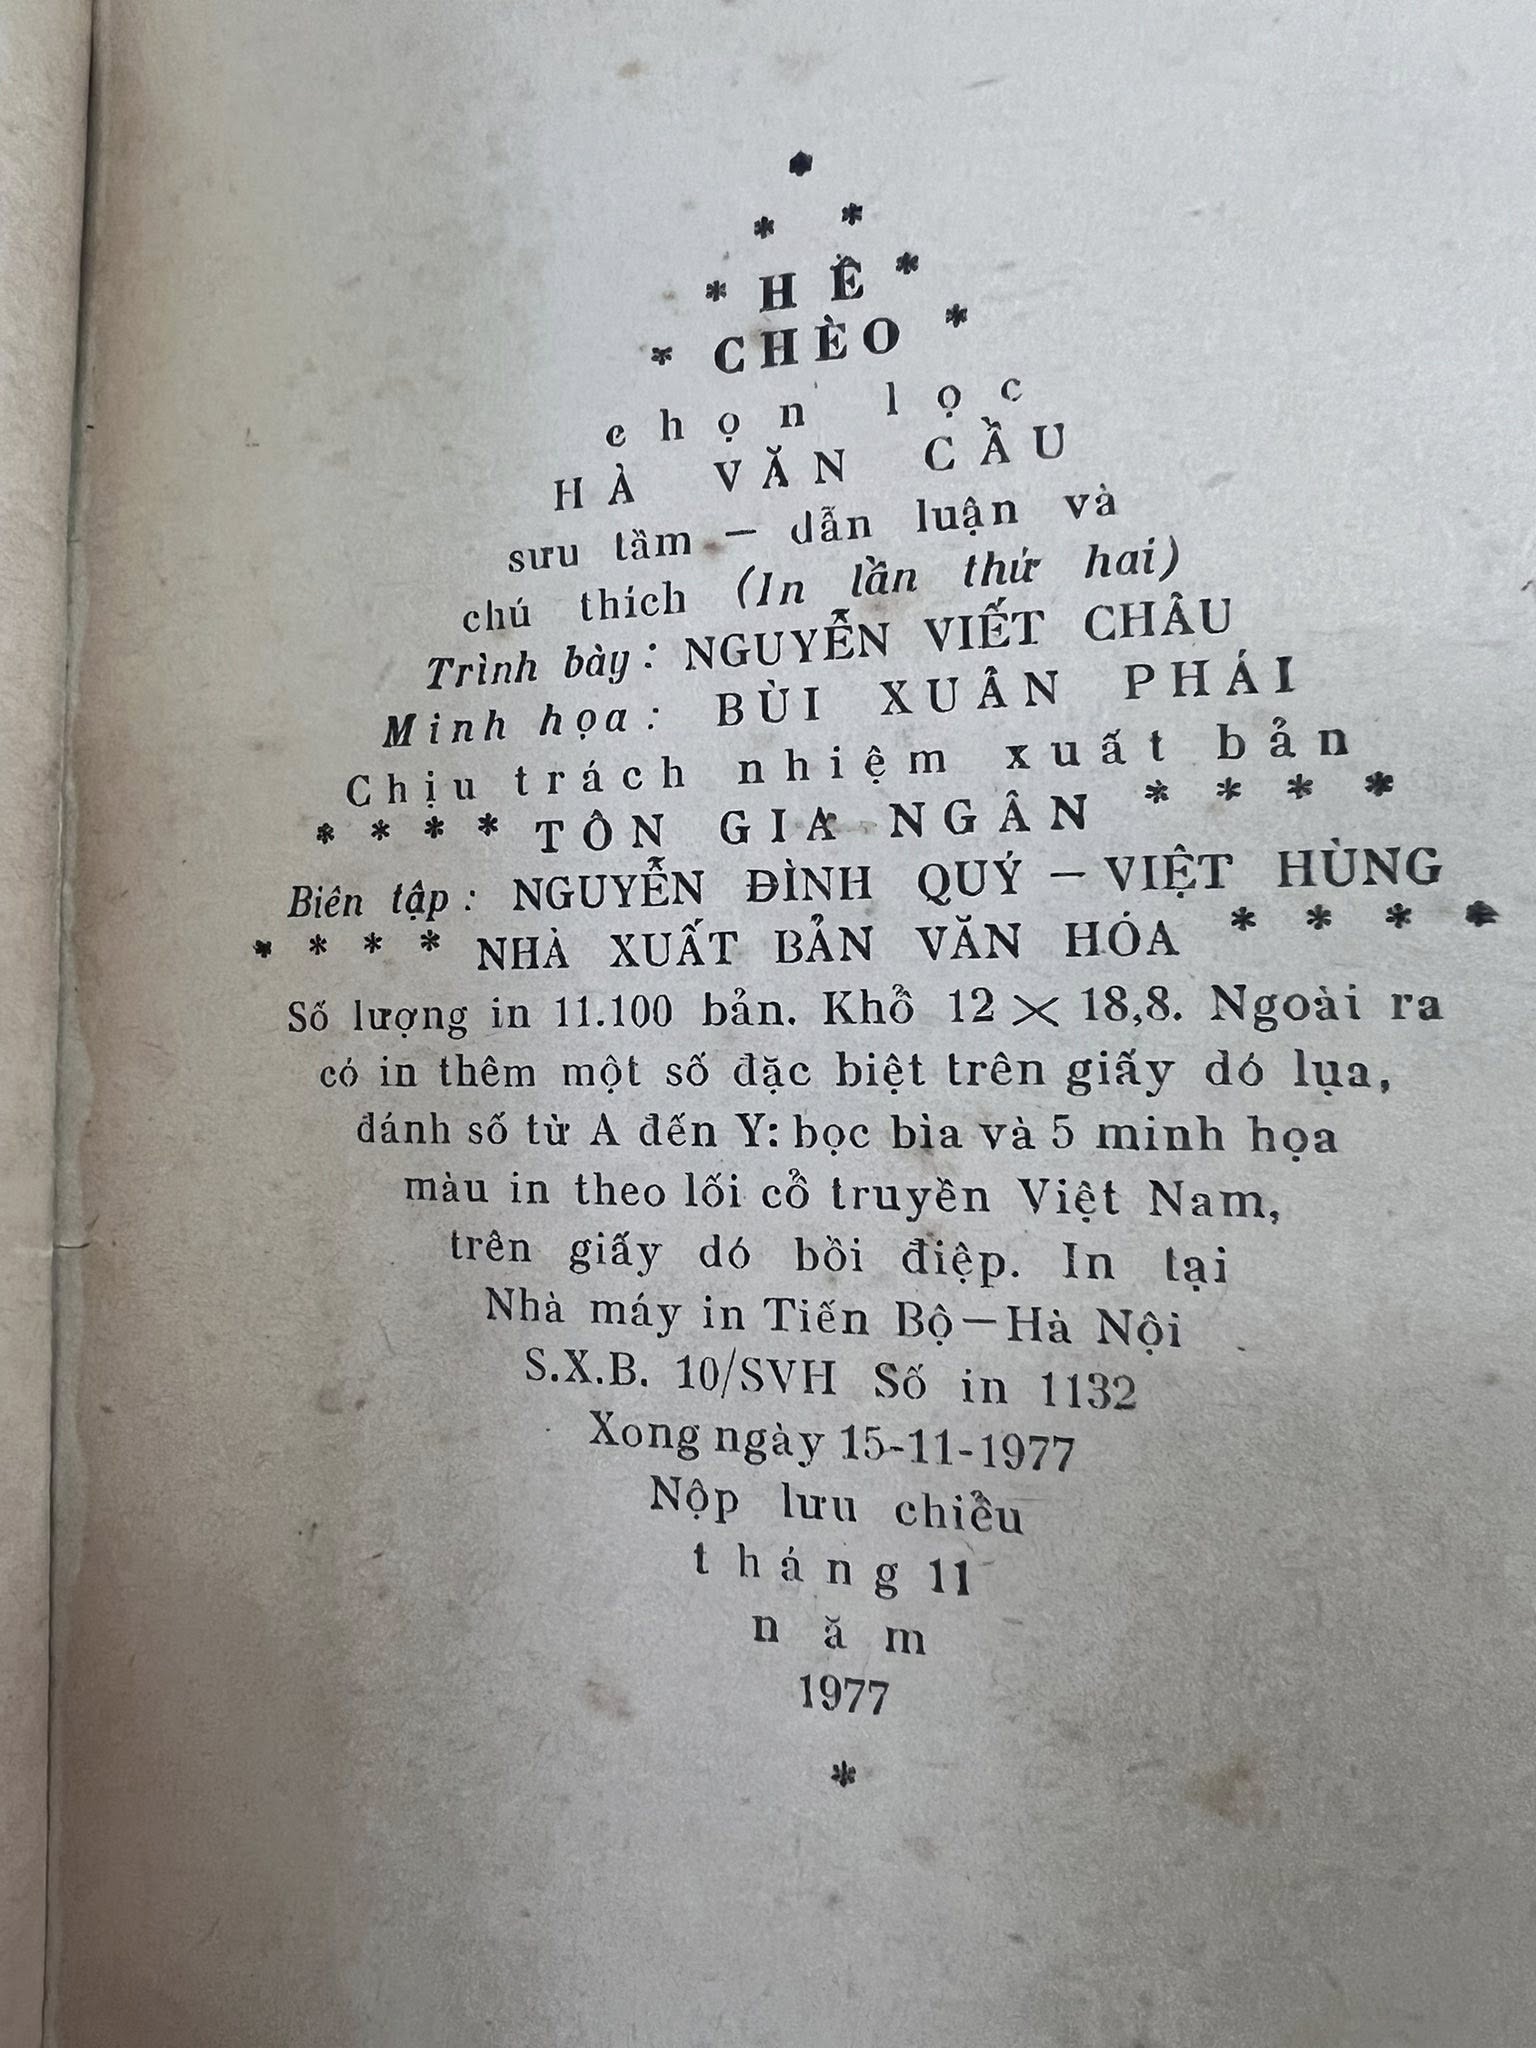 *
* *
* HỀ *
* CHÈO *
chọn lọc
HÀ VĂN CẦU
sưu tầm — dẫn luận và
chú thích (In lần thứ hai)
Trình bày: NGUYỄN VIẾT CHÂU
Minh họa: BÙI XUÂN PHÁI
Chịu trách nhiệm xuất bản
* * * * TÔN GIA NGÂN * * * *
Biên tập: NGUYỄN ĐÌNH QUÝ — VIỆT HÙNG
* * * * NHÀ XUẤT BẢN VĂN HÓA * * * *
Số lượng in 11.100 bản. Khổ 12 × 18,8. Ngoài ra
có in thêm một số đặc biệt trên giấy dó lụa,
đánh số từ A đến Y: bọc bìa và 5 minh họa
màu in theo lối cổ truyền Việt Nam,
trên giấy dó bồi điệp. In tại
Nhà máy in Tiến Bộ — Hà Nội
S.X.B. 10/SVH Số in 1132
Xong ngày 15-11-1977
Nộp lưu chiểu
tháng 11
năm
1977
*